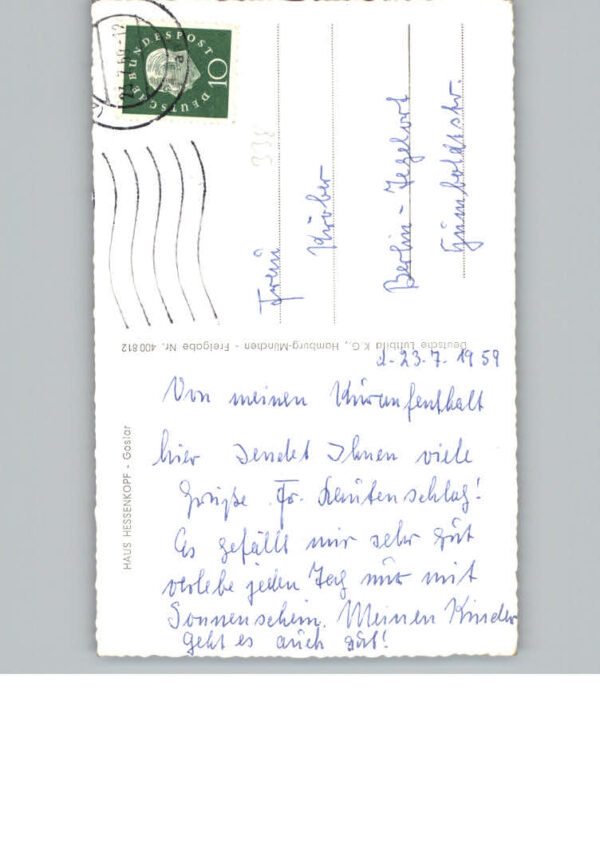 d. 23.7.1959
Von meinen Kuraufenthalt
hier sendet Ihnen viele
Grüße Fr. Lautenschlag!
Es gefällt mir sehr gut
verlebe jeden Tag nur mit
Sonnenschein. Meinen Kinder
geht es auch gut!
HAUS HESSENKOPF - Goslar
Deutsche Luftbild K.G., Hamburg-München - Freigabe Nr. 400812
DEUTSCHE BUNDESPOST
10
338
Frau
Kröber
Berlin-Tegelort
Humboldtstr.